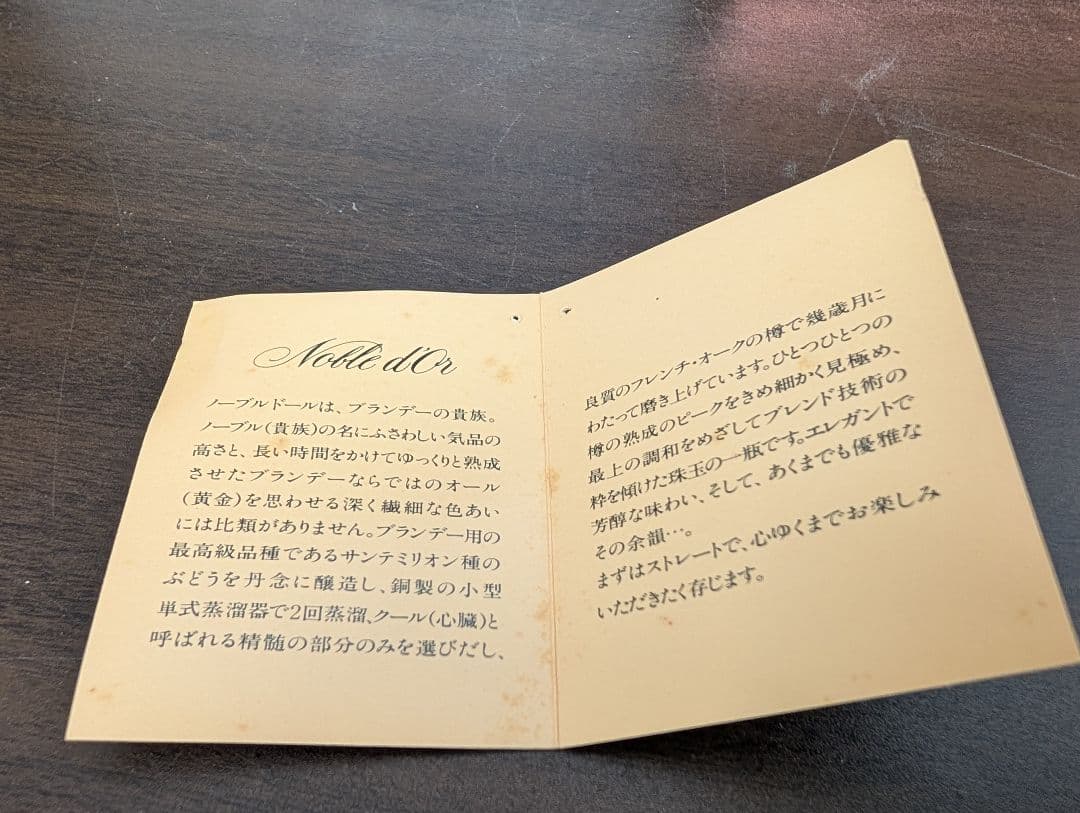 Noble d'Or
ノーブルドールは、ブランデーの貴族。
ノーブル(貴族)の名にふさわしい気品の
高さと、長い時間をかけてゆっくりと熟成
させたブランデーならではのオール
(黄金)を思わせる深く繊細な色あい
には比類がありません。ブランデー用の
最高級品種であるサンテミリオン種の
ぶどうを丹念に醸造し、銅製の小型
単式蒸溜器で2回蒸溜、クール(心臓)と
呼ばれる精髄の部分のみを選びだし、
良質のフレンチ・オークの樽で幾歳月に
わたって磨き上げています。ひとつひとつの
樽の熟成のピークをきめ細かく見極め、
最上の調和をめざしてブレンド技術の
粋を傾けた珠玉の一瓶です。エレガントで
芳醇な味わい、そして、あくまでも優雅な
その余韻…。
まずはストレートで、心ゆくまでお楽しみ
いただきたく存じます。